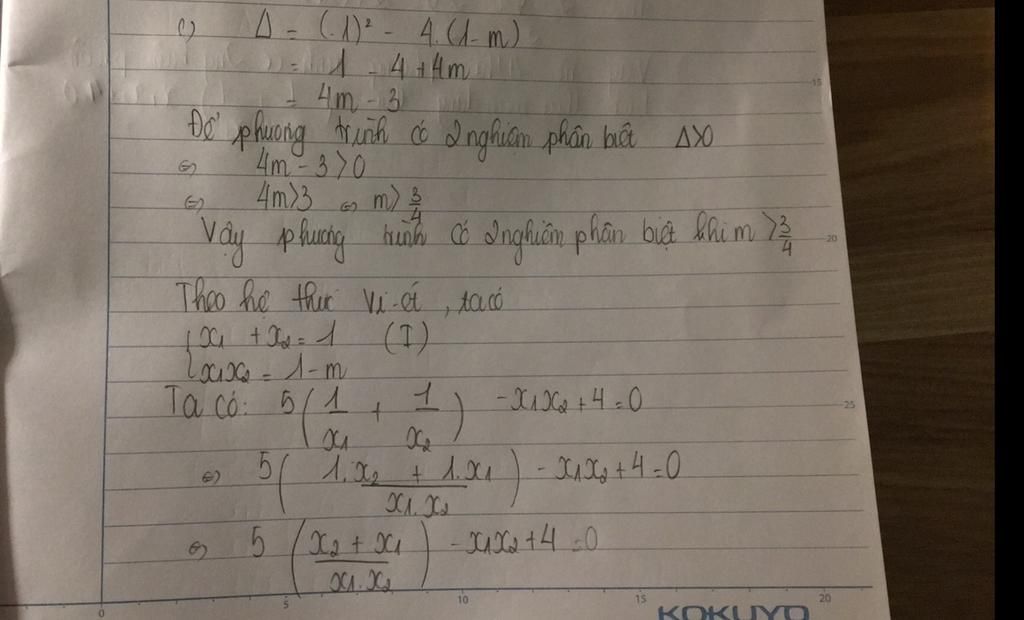 c) Δ = (-1)² - 4.(1-m)
= 1 - 4 + 4m
15
= 4m - 3
Để phương trình có 2 nghiệm phân biệt Δ>0
⇔ 4m - 3 > 0
⇔ 4m>3 ⇔ m> 3/4
Vậy phương trình có 2 nghiệm phân biệt khi m > 3/4
20
Theo hệ thức Vi-ét, ta có
{x₁ + x₂ = 1 (I)
{x₁x₂ = 1-m
Ta có: 5(1/x₁ + 1/x₂) - x₁x₂ + 4 = 0
25
⇔ 5((1.x₂ + 1.x₁)/(x₁.x₂)) - x₁x₂ + 4 = 0
⇔ 5((x₂ + x₁)/(x₁.x₂)) - x₁x₂ + 4 = 0
0 5 10 15 20
KOKUYO